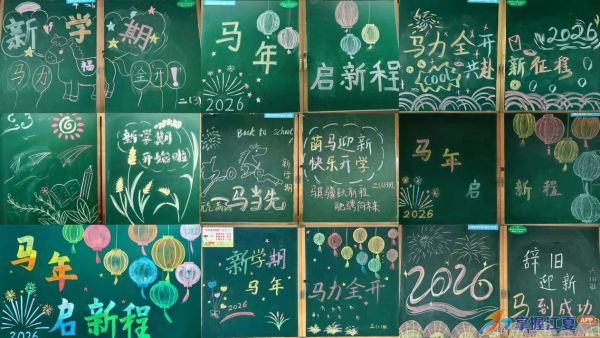 新学期
马力全开!
福
二(3)
马年
启新程
2026
马力全开
cool
共赴
2026
新征程
新学期
开始啦
Back to school
新学期
马当先
萌马迎新
快乐开学
骐骥跃新程
驰骋向未来
马年
启新程
2026
马年
启新程
新学期
马年
2026
马力全开
2026
辞旧
迎新
马到成功
掌握江夏 APP